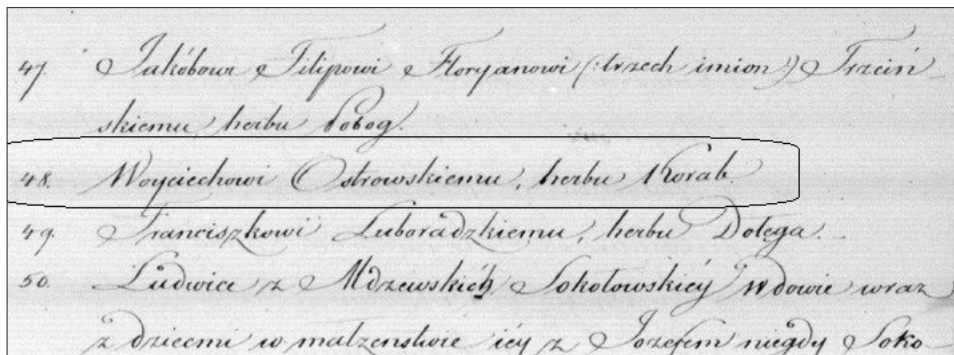 47. Jakóbowi Filipowi Floryanowi (: trzech imion :) Trzciń-
skiemu, herbu Pobog.
48. Woyciechowi Ostrowskiemu, herbu Korab.
49. Franciszkowi Luboradzkiemu, herbu Dołęga.
50. Ludwice z Mdzewskich Sokołowskiéy Wdowie wraz
z dziećmi w małżeństwie iéy z Jozefem niegdy Soko